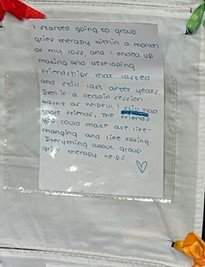 I started going to group
grief therapy within a month
of my loss, and I ended up
making and developing
friendships that lasted
and still last after years.
Even if a certain session
wasn't as helpful I
more friends. The friends
you could make are life-
changing and life saving.
Everything about group
grief therapy helps